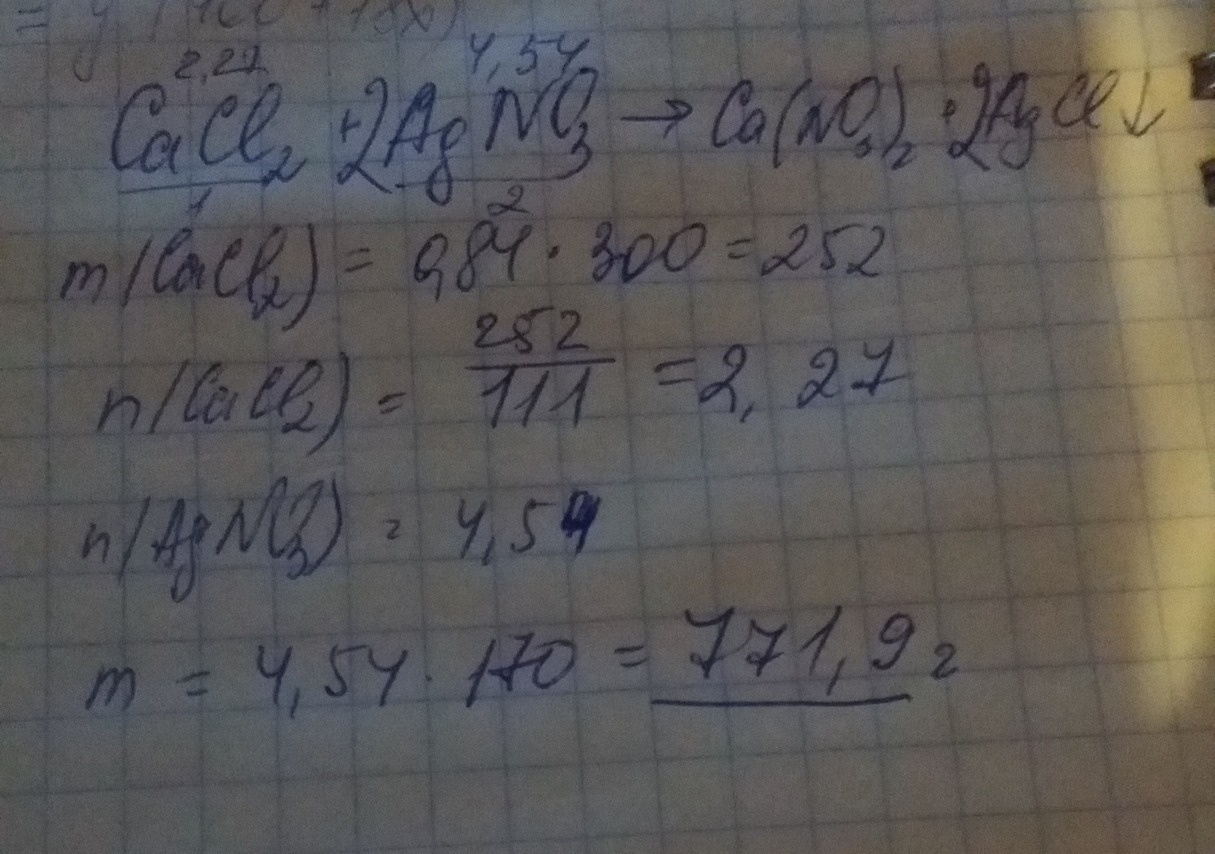 2,27 4,54
CaCl₂ + 2AgNO₃ → Ca(NO₃)₂ + 2AgCl↓
1 2
m/CaCl₂) = 0,84 · 300 = 252
n/CaCl₂) = 252/111 = 2,27
n/AgNO₃) = 4,54
m = 4,54 · 170 = 771,9 г